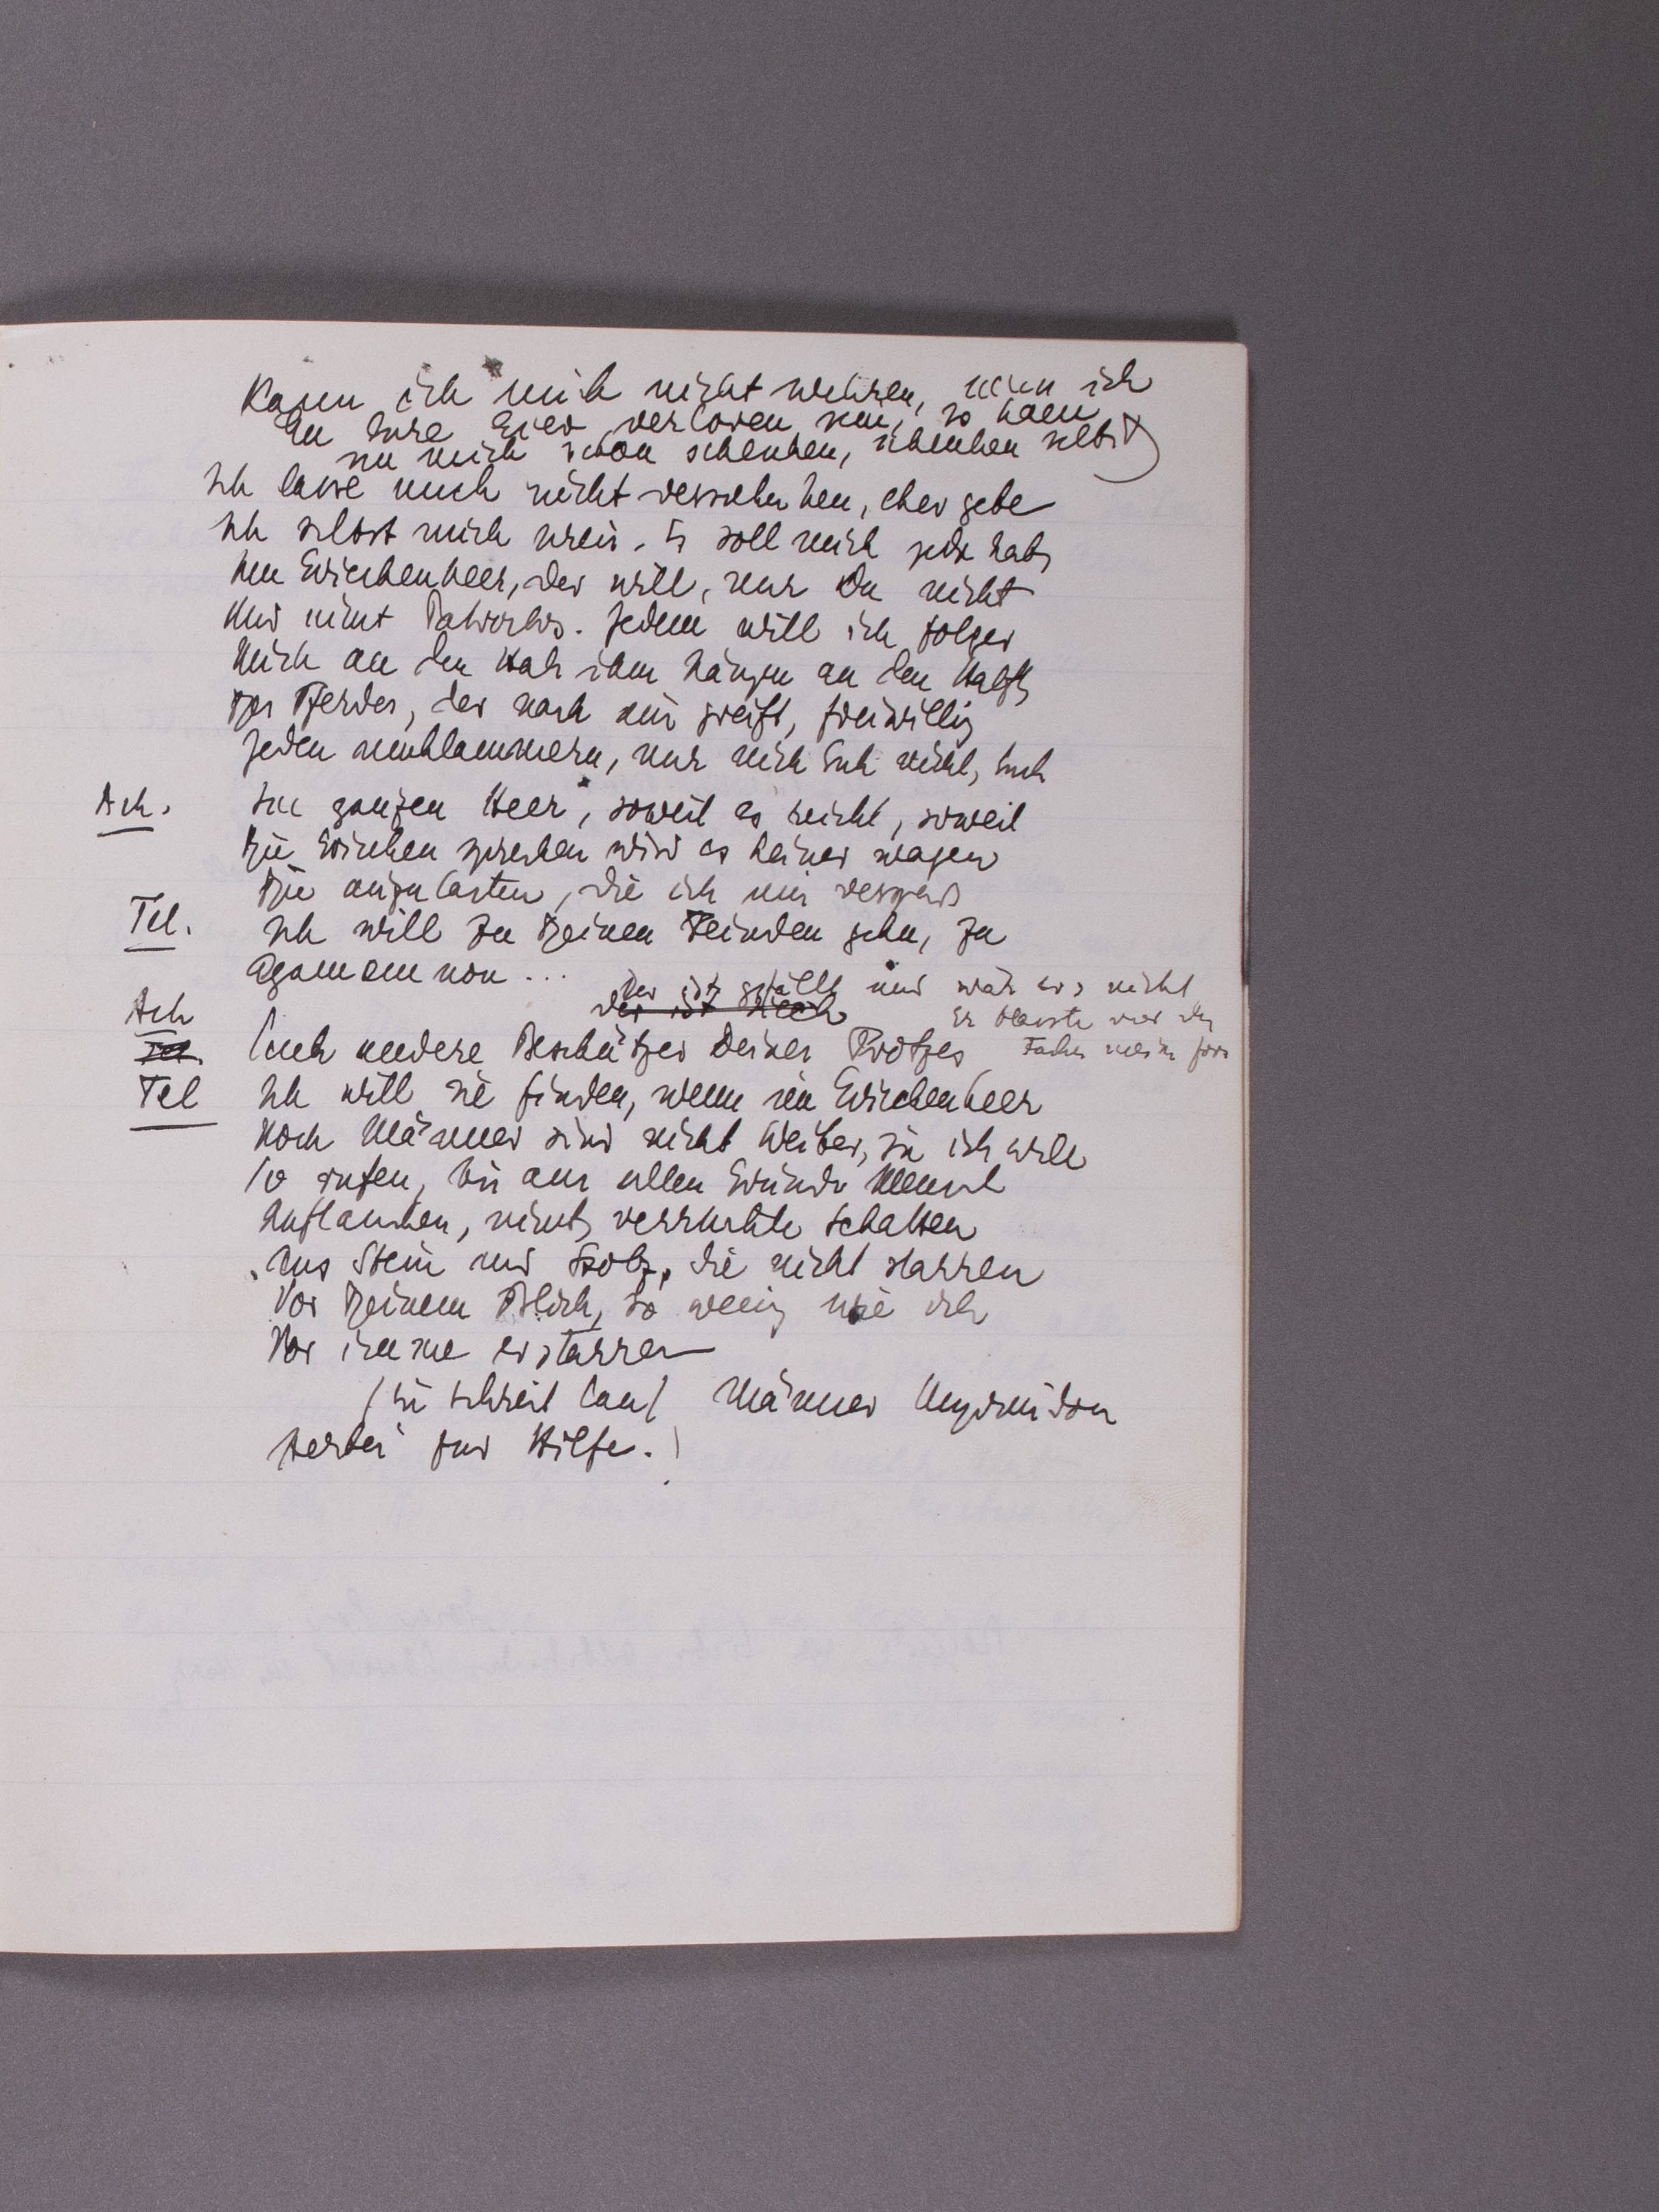 Kann ich mich nicht wehren, muss ich
An Eure Gier verloren sein, so kann
nu mich schon schenken, schenken selbst
Ich lasse mich nicht verschenken, eher gebe
Ich selbst mich preis. Es soll mich jeder hab
Im Griechenheer, der will, nur Du nicht
Und nicht Patroclus. Jedem will ich folgen
Mich an den Hals ihm hängen an den Halft
Des Pferdes, der nach mir greift, freiwillig
Jeden umklammern, nur nicht Euch nicht, Euch
Ach. Im ganzen Heer, soweit es reicht, soweit
Die Griechen sprechen wird es keiner wagen
Die anzutasten, die ich mir
Tel. Ich will zu Deinen Feinden gehn, zu
Agamemnon ...
Der ist gefällt und wär er's nicht
der ist
Er vor
mein
Ach Such andere Beschützer Deines Trotzes
Tel Ich will sie finden, wenn im Griechenheer
Noch Männer sind nicht Weiber, ja ich will
So rufen, bis aus allen Gründe Mensch
Auftauchen, nicht verruchte Schatten
Aus Stein und Stolz, die nicht starren
Vor Deinem Blick, so wenig wie ich
Vor ihm erstarren
(sie schreit laut Männer Myrmidon
Herbei zur Hilfe.)